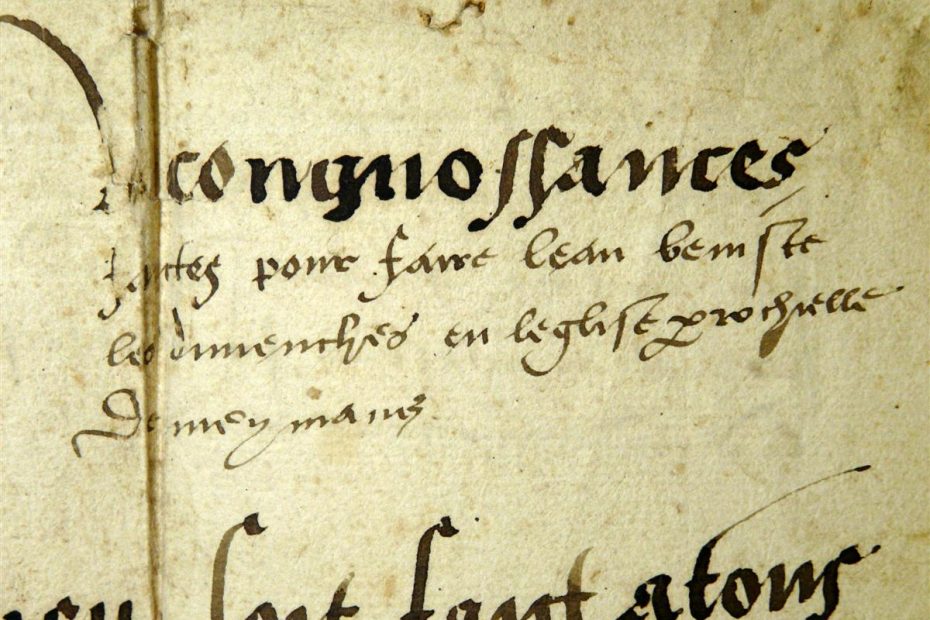 congnossances
faictes pour faire leau beniste
les dimenches en leglise ꝑrochielle
De meymans
soit faict atous